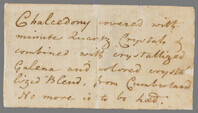 Chalcedony covered with
minute Quartz Crystals, &
combined with crystallized
Galena and colored crystal
lized Blend, from Cumberland
No more is to be had.